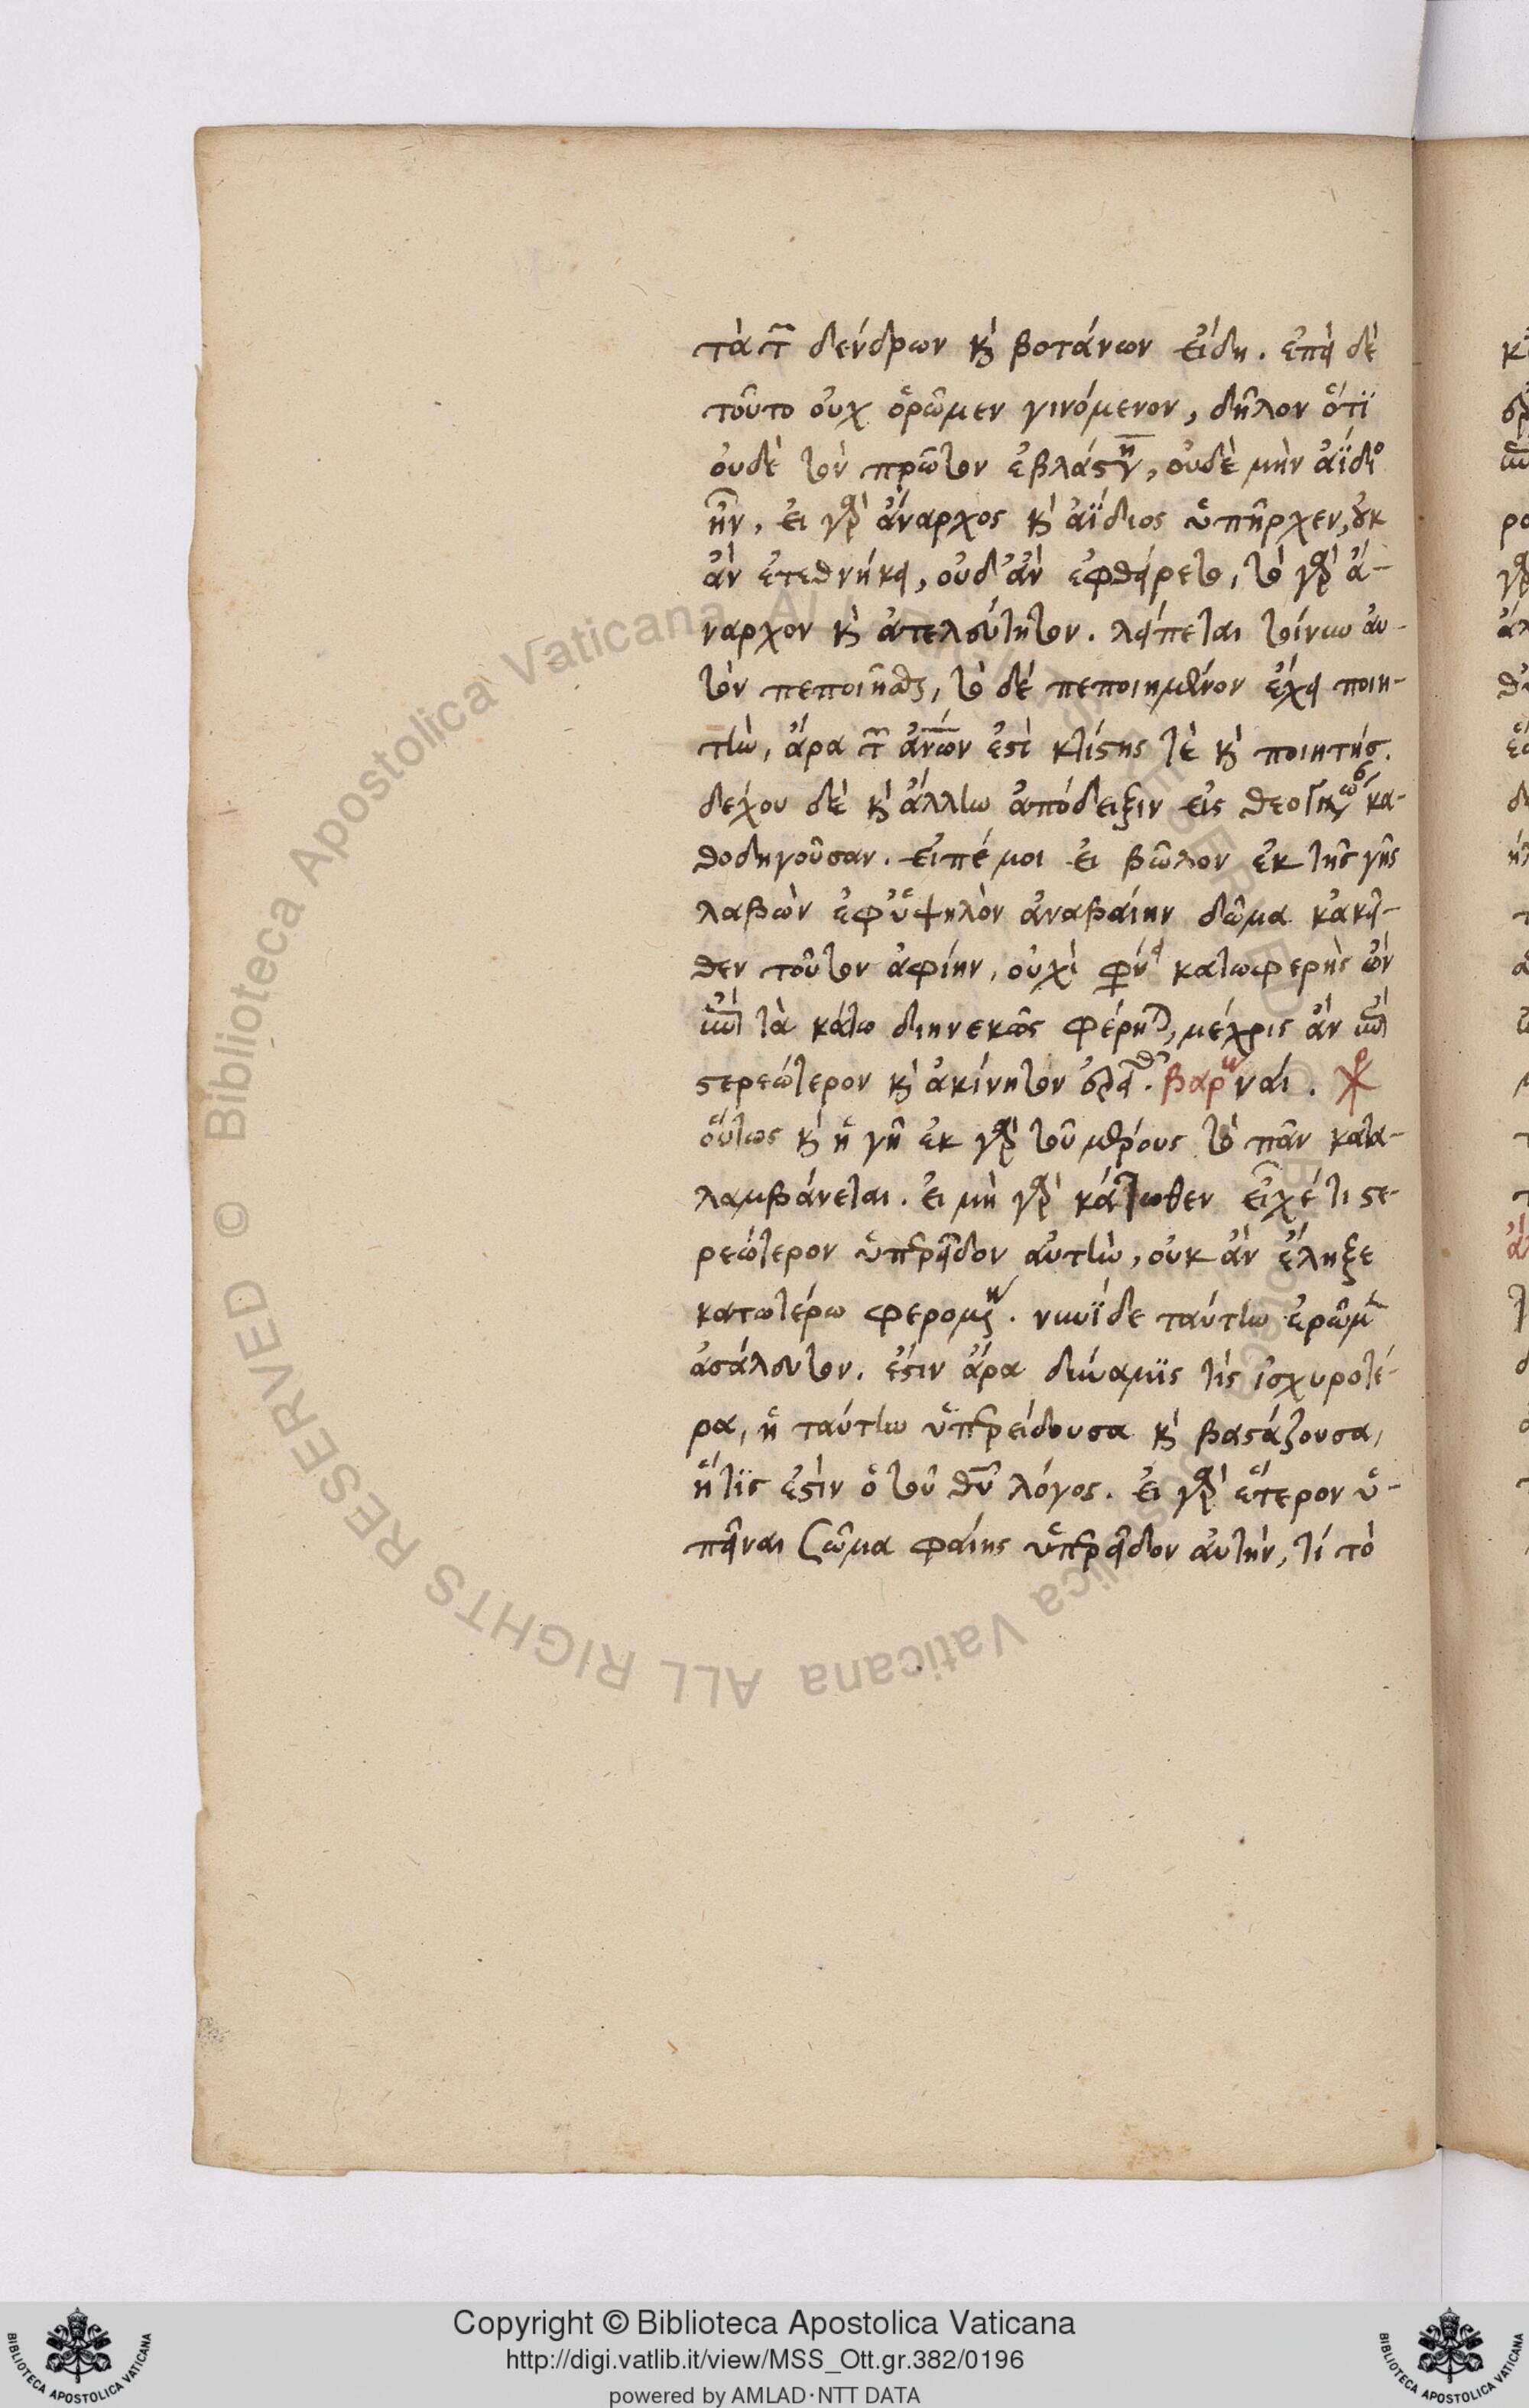 τὰ τῶν δένδρων κὶ βοτάνων εἴδη. ἐπεὶ δὲ
τοῦτο οὐχ ὁρῶμεν γινόμενον, δῆλον ὅτϊ
οὐδὲ τὸν πρῶτον ἐβλάστησεν, οὐδὲ μὴν ἀΐδιος
ἦν, εἰ γὰρ ἄναρχος κὶ ἀΐδιος ὑπῆρχεν, οὐκ
ἂν ἐτεθνήκει, οὐδ' ἂν ἐφθείρετο, τὸ γὰρ ἄ-
ναρχον κὶ ἀτελεύτητον. λείπεται τοίνυν αὐ-
τὸν πεποιῆσθαι, τὸ δὲ πεποιημένον ἔχει ποιη-
τὴν, ἄρα τῶν ἀνων ἐστὶ κτίστης τὲ κὶ ποιητής.
δέχου δὲ κὶ ἄλλην ἀπόδειξιν εἰς κα-
θοδηγοῦσαν. εἰπέ μοι εἰ βῶλον ἐκ τῆς γῆς
λαβὼν ἐφ' ὑψηλὸν ἀναβαίην δῶμα κἀκεῖ-
θεν τοῦτον ἀφίην, οὐχὶ κατωφερὴς ὢν
ἐπὶ τὰ κάτω διηνεκῶς φέρηται, μέχρις ἂν ἐπὶ
στερεώτερον κὶ ἀκίνητον
οὕτως κὶ ἡ γῆ ἐκ γὰρ τοῦ μέρους τὸ πᾶν κατα-
λαμβάνεται. εἰ μὴ γὰρ κάτωθεν εἶχέ τι στε-
ρεώτερον ὑπερεῖδον αὐτὴν, οὐκ ἂν ἔληξε
κατωτέρω φερομένη. νυνϊ δε ταύτην ἐρῶμεν
ἀσάλευτον. ἔστιν ἄρα δύναμϊς τίς ἰσχυροτέ-
ρα, ἡ ταύτην ὑπερείδουσα κὶ βαστάζουσα,
ἥτϊς ἐστὶν ὁ τοῦ θυ λόγος. εἰ γὰρ ἕτερον ὑ-
πεῖναι σῶμα φαίης ὑπερεῖδον αὐτὴν, τί τὸ
Copyright © Biblioteca Apostolica Vaticana
http://digi.vatlib.it/view/MSS_Ott.gr.382/0196
powered by AMLAD·NTT DATA